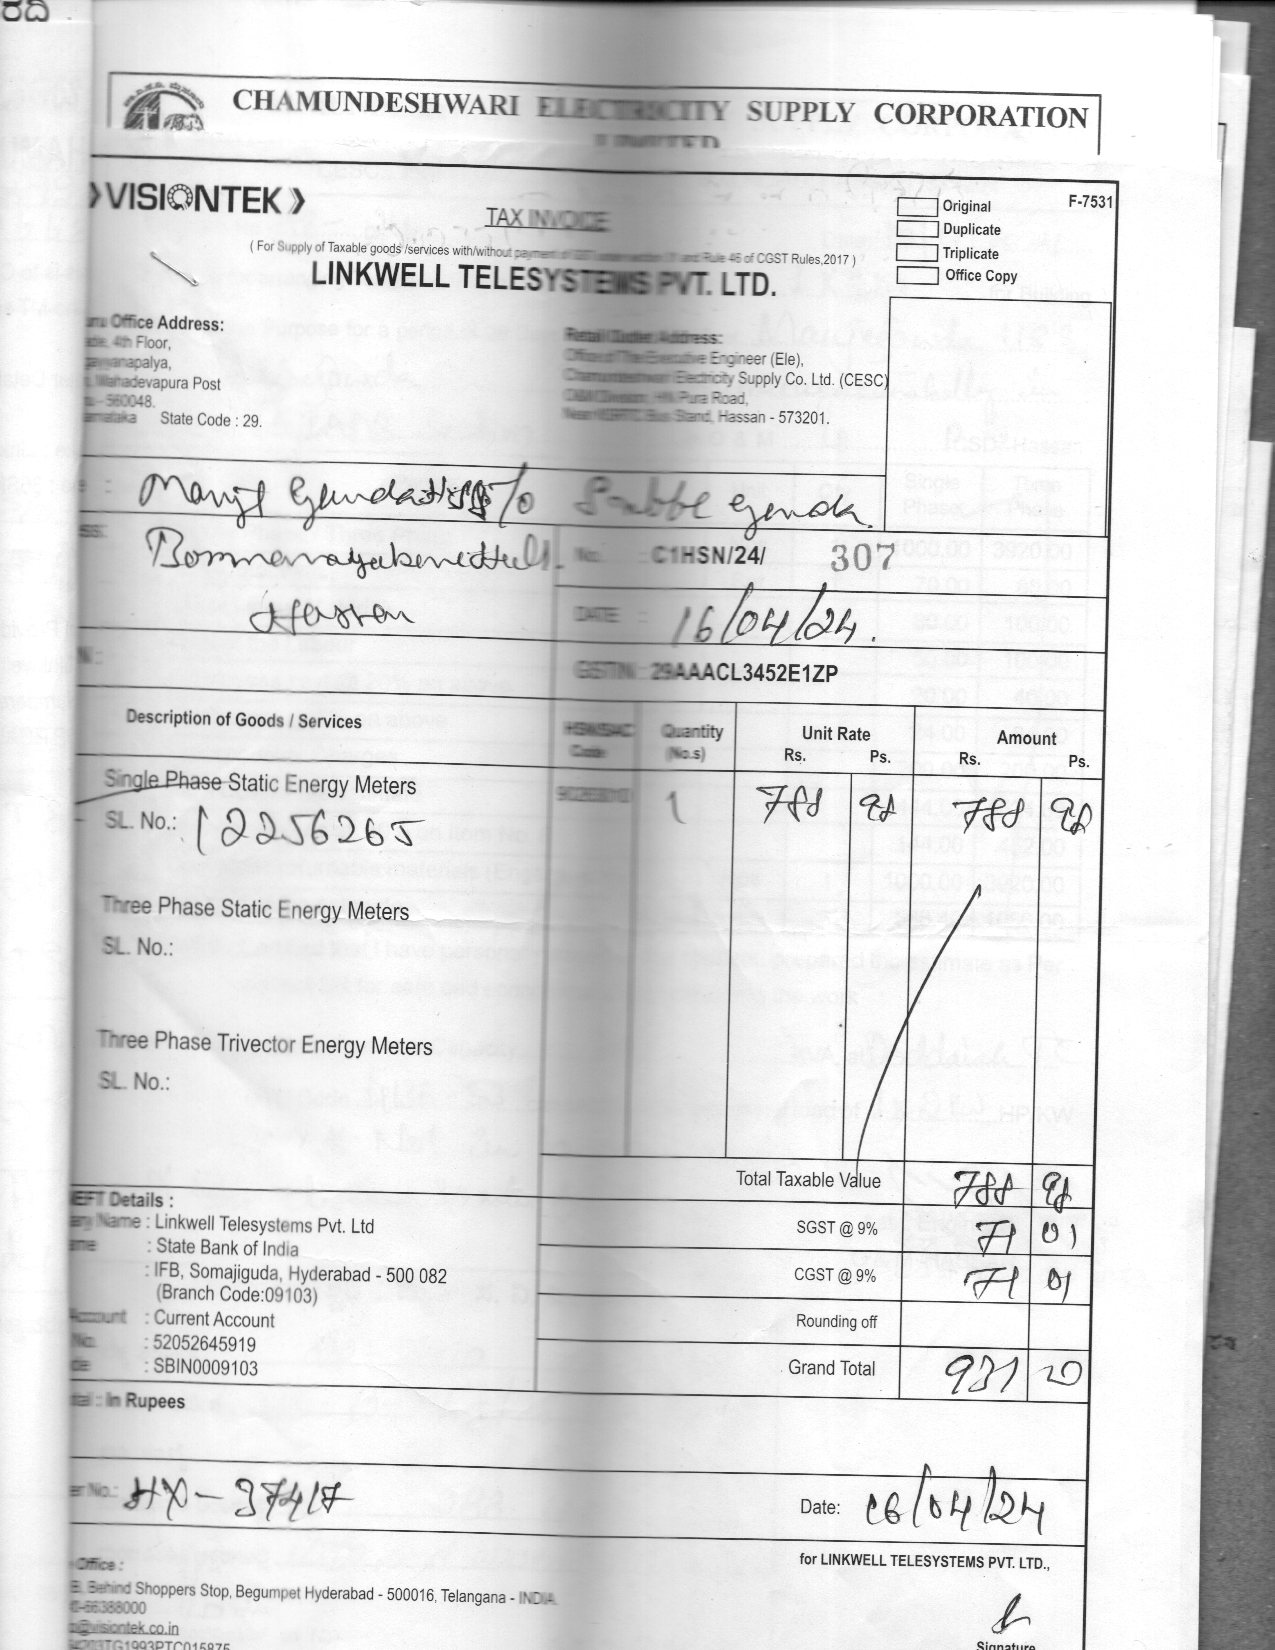 ರದಿ
CHAMUNDESHWARI ELECTRICITY SUPPLY CORPORATION
LIMITED
VISIONTEK
F-7531
TAX INVOICE
Original
Duplicate
Triplicate
Office Copy
( For Supply of Taxable goods /services with/without payment of GST under section 31 and Rule 46 of CGST Rules,2017 )
LINKWELL TELESYSTEMS PVT. LTD.
Office Address:
4th Floor,
Mahadevapura Post
- 560048.
State Code : 29.
Retail Outlet Address:
Office of The Executive Engineer (Ele),
Chamundeshwari Electricity Supply Co. Ltd. (CESC)
O&M Division, HN Pura Road,
Near KSRTC Bus Stand, Hassan - 573201.
Hassan
No. : C1HSN/24/ 307
DATE : 16/04/24.
GSTIN : 29AAACL3452E1ZP
Description of Goods / Services HSN/SAC Code Quantity (No.s) Unit Rate Rs. Ps. Amount Rs. Ps.
Single Phase Static Energy Meters 1 788 98 788 98
SL. No.: 12256265
Three Phase Static Energy Meters
SL. No.:
Three Phase Trivector Energy Meters
SL. No.:
Total Taxable Value 788 98
SGST @ 9% 71 01
CGST @ 9% 71 01
Rounding off
Grand Total 931 20
NEFT Details :
Name : Linkwell Telesystems Pvt. Ltd
: State Bank of India
: IFB, Somajiguda, Hyderabad - 500 082
(Branch Code:09103)
Account : Current Account
No. : 52052645919
: SBIN0009103
: In Rupees
No.: HX-37417
Date: 16/04/24
for LINKWELL TELESYSTEMS PVT. LTD.,
Office :
Behind Shoppers Stop, Begumpet Hyderabad - 500016, Telangana - INDIA
-66388000
@visiontek.co.in
Signature